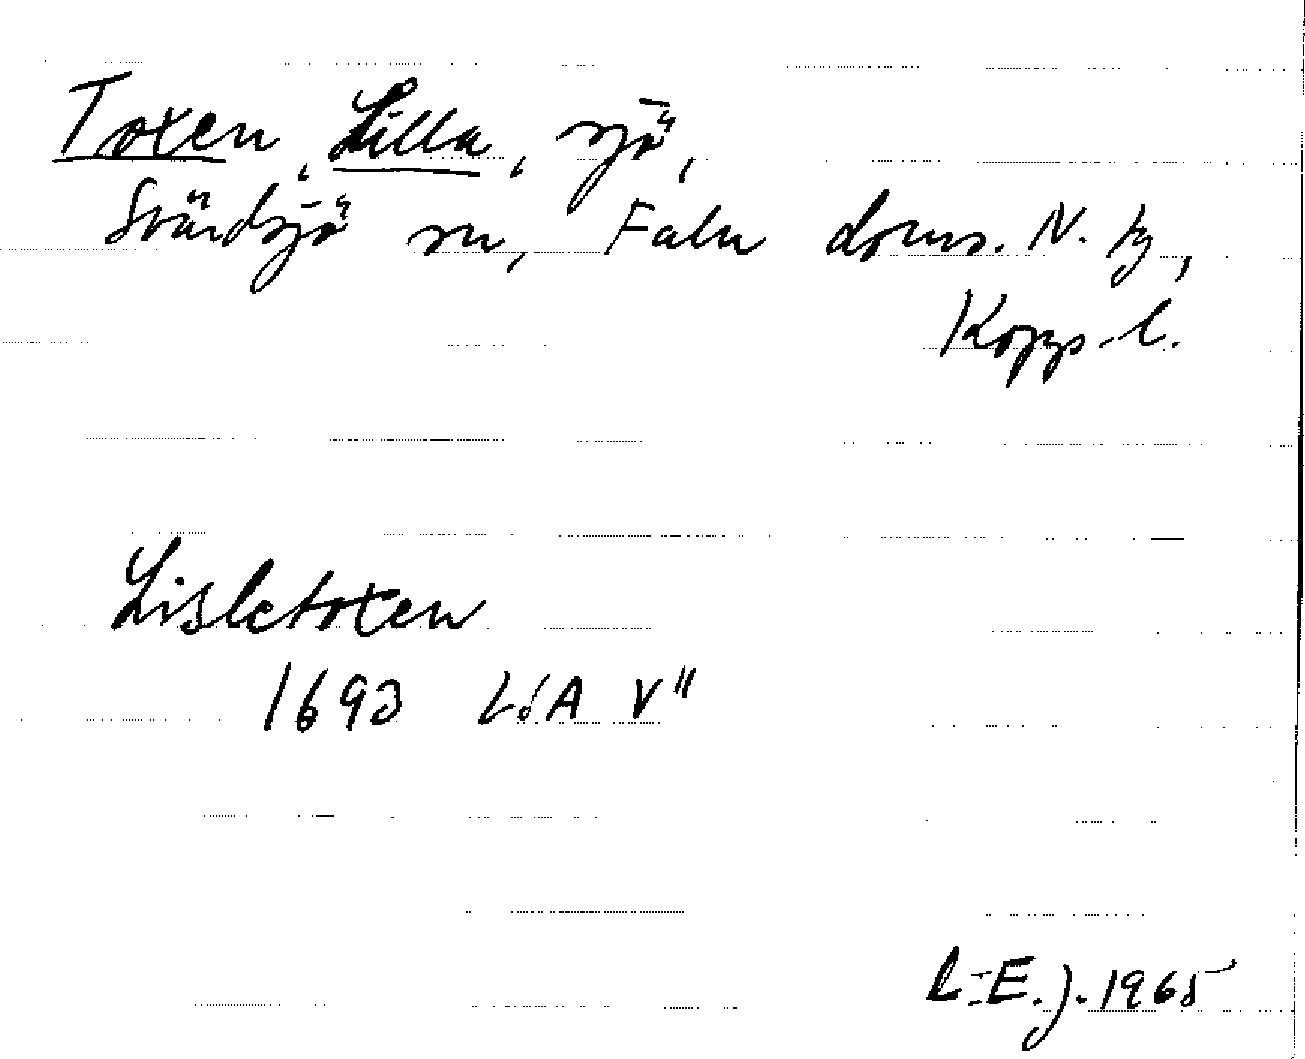 Toxen, Lilla, sjö,
Svärdsjö sn, Falu doms. N. tg,
Kopp. l.
Lisletoxen
1693 LSA V"
L-E. J. 1965